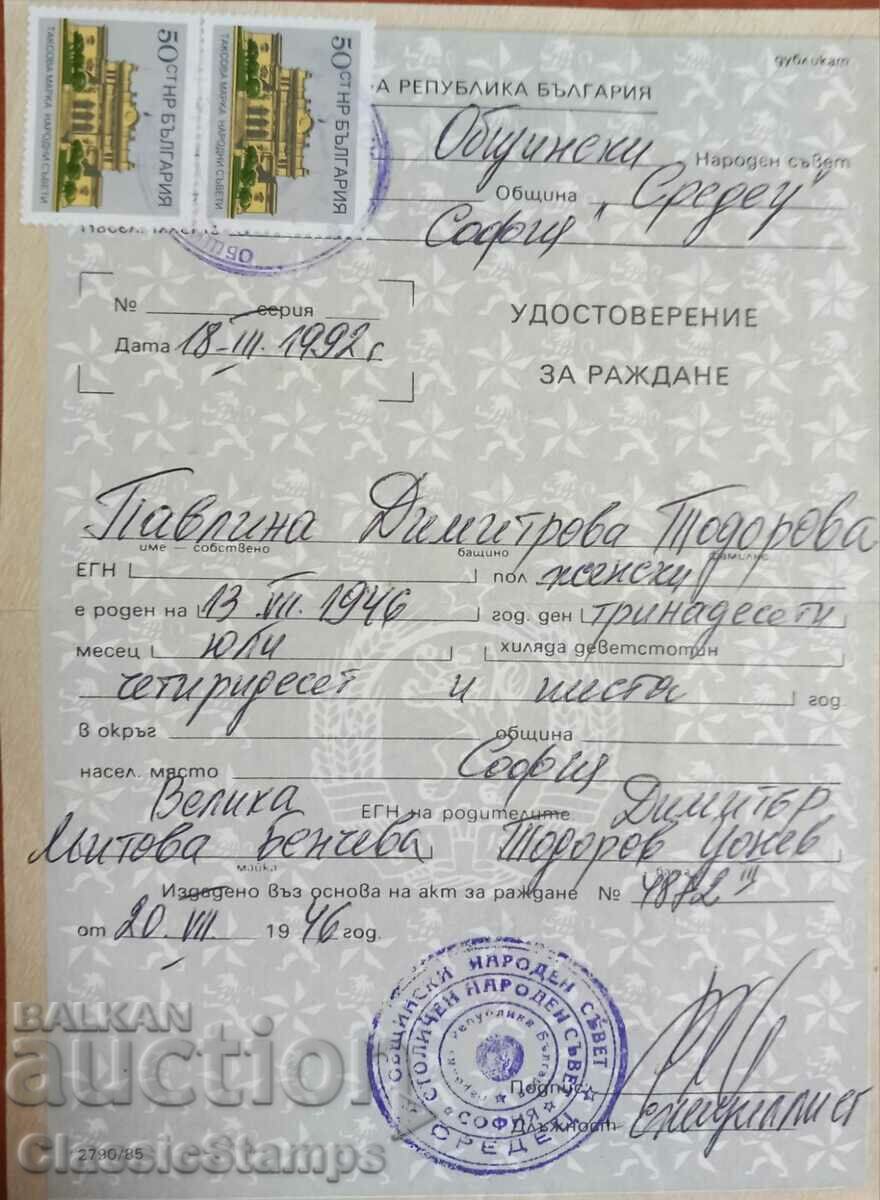 50 СТ НР БЪЛГАРИЯ
ТАКСОВА МАРКА НАРОДНИ СЪВЕТИ
50 СТ НР БЪЛГАРИЯ
ТАКСОВА МАРКА НАРОДНИ СЪВЕТИ
дубликат
А РЕПУБЛИКА БЪЛГАРИЯ
Общински Народен съвет
Община "Средец"
София
№ серия
Дата 18-III.1992г
УДОСТОВЕРЕНИЕ
ЗА РАЖДАНЕ
Павлина Димитрова Тодорова
име — собствено бащино фамилно
ЕГН пол женски
е роден на 13 VII. 1946 год. ден тринадесети
месец Юли хиляда деветстотин
четиридесет и шеста год.
в окръг община
насел. място София
Велика ЕГН на родителите Димитър
Митова Бенчева Тодоров Цонев
майка
Издадено въз основа на акт за раждане № 4872 III
от 20. VII. 1946 год.
ОБЩИНСКИ НАРОДЕН СЪВЕТ
СТОЛИЧЕН НАРОДЕН СЪВЕТ
Народна Република България
СОФИЯ
СРЕДЕЦ
Подпис
Длъжност специалист
2790/85
BALKAN
auction
ClassicStamps